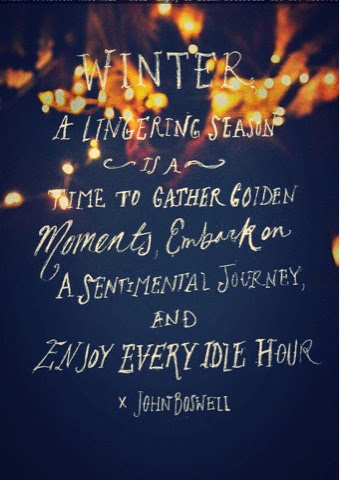 WINTER,
A LINGERING SEASON
IS A
TIME TO GATHER GOLDEN
Moments, Embark on
A SENTIMENTAL JOURNEY,
AND
ENJOY EVERY IDLE HOUR
x JOHN BOSWELL